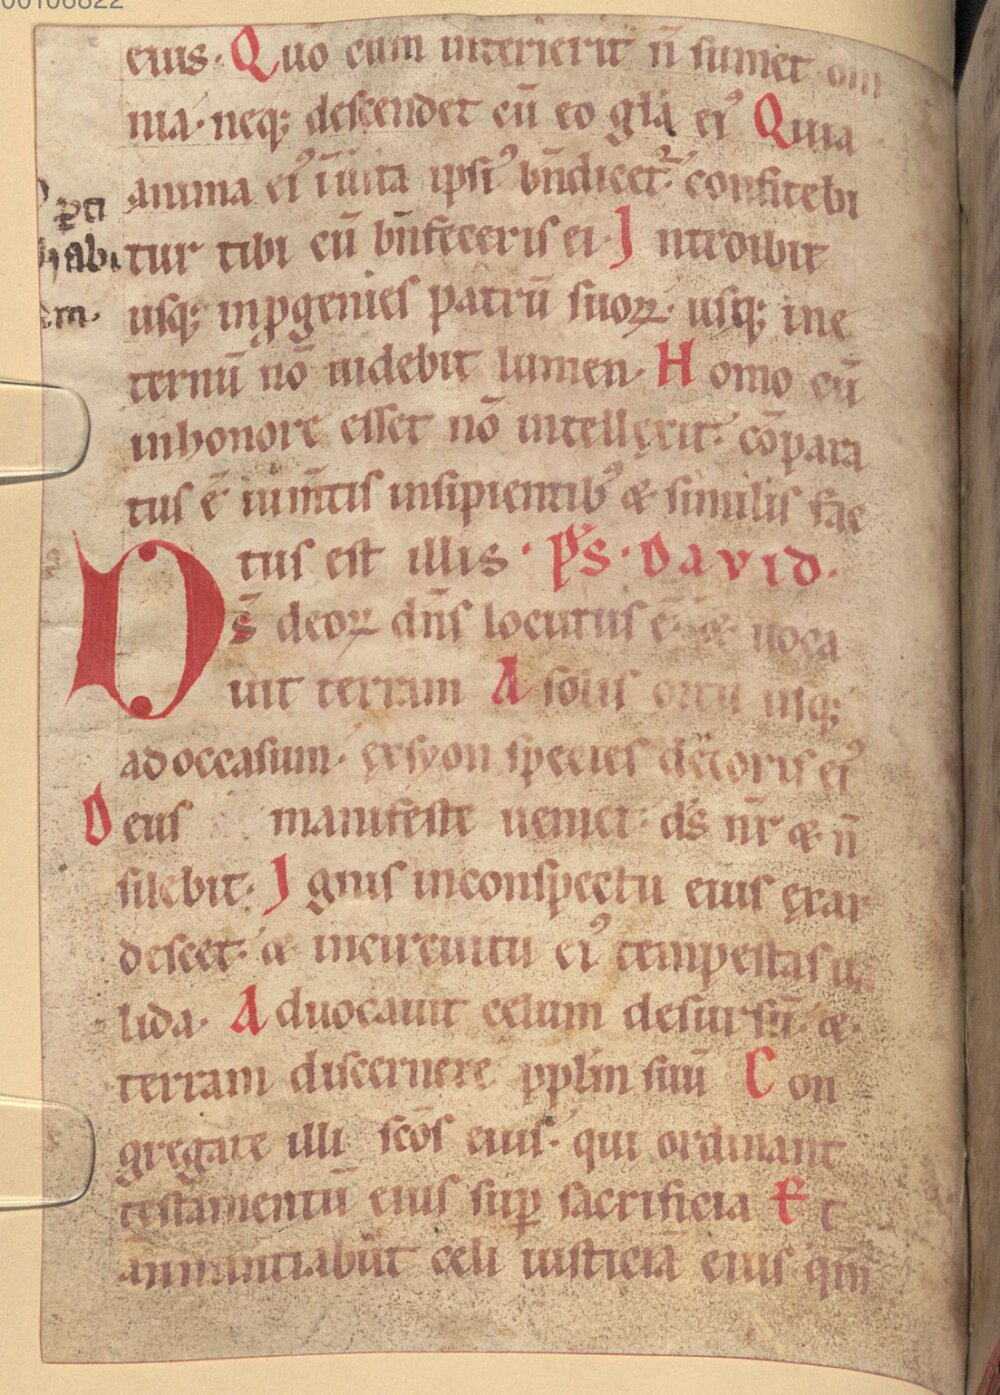 00106822
eius. Quō cum interierit n̄ sumet om
nia. neq; descendet cū eo gl̄a eiꝰ Quia
anima eiꝰ ī uita ipsiꝰ bn̄dicet᷑. confitebi
tur tibi cū bn̄feceris ei. Introibit
usq; in ꝓgenies patrū suoꝝ. usq; in e
ternū nō uidebit lumen. Homo cū
in honore esset nō intellexit. cōpara
tus ē ium̄tis insipientibꝰ & similis fac
tus est illis. ps̄. DAVID.
Ds̄ deoꝝ dn̄s locutus ē. & uoca
uit terram A solis ortu usq;
ad occasum. ex syon species decoris eiꝰ
Deus manifeste ueniet. ds̄ nr̄ & n̄
silebit. Ignis in conspectu eius exar
descet. & in circuitu eiꝰ tempestas ua
lida. Aduocauit celum desursū. &
terram discernere pplm̄ suū Con
gregate illi scōs eius. qui ordinant
testamentū eius suꝑ sacrificia Et
annuntiabūt celi iusticiā eius qm̄